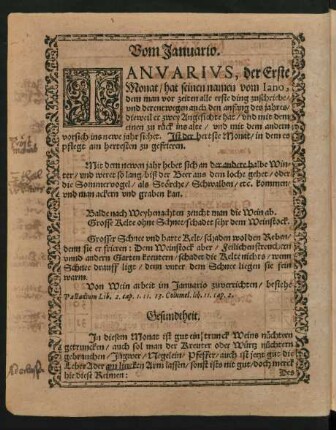 Vom Januario.
IANVARIVS, der Erste
Monat / hat seinen namen vom Iano,
dem man vor zeiten alle erste ding zuschriebe /
und derentwegen auch den anfang des jahrs /
dieweil er zwey Angesichte hat / und mit dem
einen zu rück ins alte / und mit dem andern
vorsich ins newe jahr sihet. Ist der herteste Monat / in dem es
pflegt am hertesten zu gefrieren.
Mit dem newen jahr hebet sich an der ander halbe Win-
ter / und weret so lang / biß der Beer aus dem loche gehet / oder
die Sommervögel / als Störche / Schwalben / etc. kommen /
und man ackern und graben kan.
Balde nach Weyhenachten zeucht man die Wein ab.
Grosse Kelte ohne Schnee / schadet sehr dem Weinstock.
Grosser Schnee und harte Kelt / schaden wol den Reben /
denn sie erfrieren: Dem Weinstock aber /
unnd andern Garten kreutern / schadet die Kelte nichts / wenn
Schnee drauff ligt / denn unter dem Schnee liegen sie fein
warm.
Von Wein arbeit im Januario zuverrichten / besiehe
Palladium Lib. 2. cap. 1. 11. 13. Columel. lib. 11. cap. 2.
Gesundheit.
In diesem Monat ist gut ein trunck Weins nüchtern
getruncken / auch sol man der Kreuter oder Würtz nüchtern
gebrauchen / Ingwer / Negelein / Pfeffer / auch ist jetzt gut die
Leber Ader am lincken Arm lassen / sonst ists nit gut / doch merck
hie diese Reimen:
Des